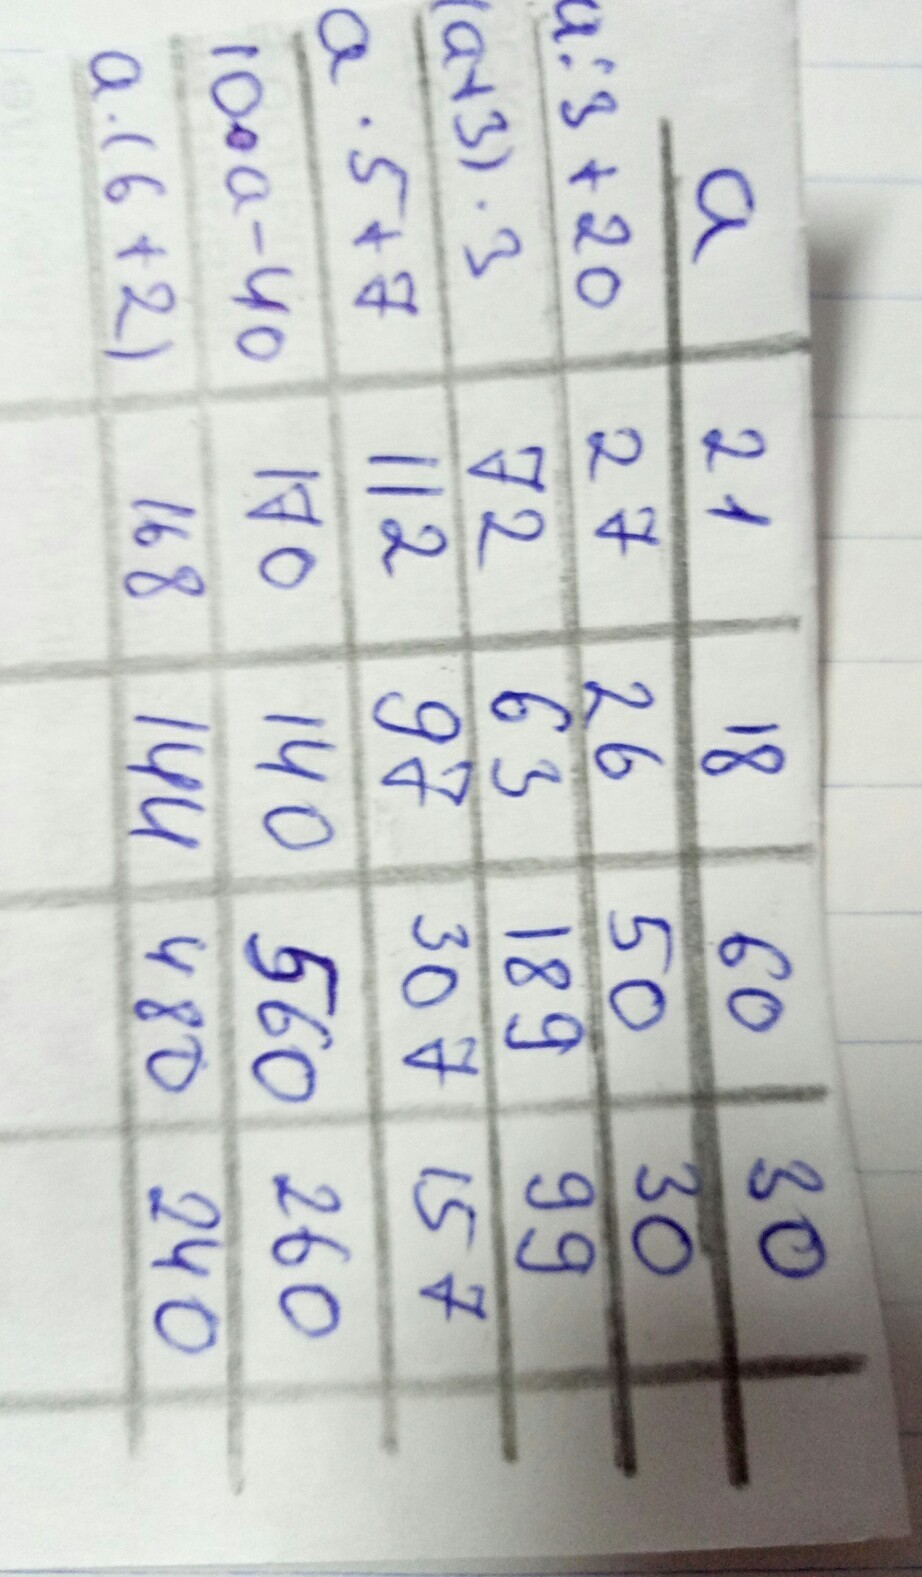 a 21 18 60 30
a:3 + 20 27 26 50 30
(a+3) · 3 72 63 189 99
a · 5 + 7 112 97 307 157
10·a-40 170 140 560 260
a·(6+2) 168 144 480 240